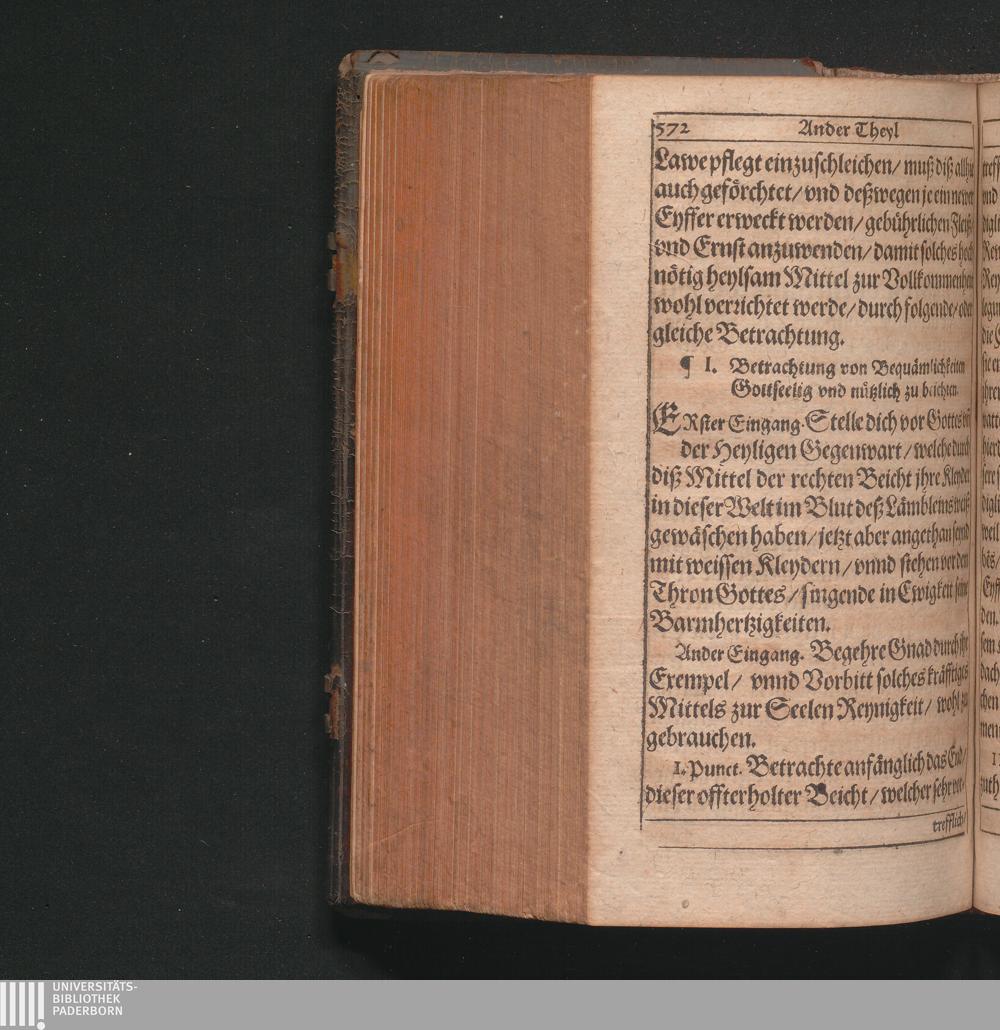 572 Ander Theyl
Lawe pflegt einzuschleichen/ muß diß allhie
auch geförchtet/ vnd deßwegen je ein newer
Eyffer erweckt werden/ gebührlichen Fleiß/
vnd Ernst anzuwenden/ damit solches hoch
nötig heylsam Mittel zur Vollkommenheit
wohl verrichtet werde/ durch folgende/ oder
gleiche Betrachtung.
¶ I. Betrachtung von Bequämlichkeiten
Gottseelig vnd nützlich zu beichten.
ERster Eingang. Stelle dich vor Gottes vñ
der Heyligen Gegenwart/ welche durch
diß Mittel der rechten Beicht jhre Kleyder
in dieser Welt im Blut deß Lämbleins weiß
gewäschen haben/ jetzt aber angethan seynd
mit weissen Kleydern/ vnnd stehen vor dem
Thron Gottes/ singende in Ewigkeit seine
Barmhertzigkeiten.
Ander Eingang. Begehre Gnad durch jhr
Exempel/ vnnd Vorbitt solches kräfftiges
Mittels zur Seelen Reynigkeit/ wohl zu
gebrauchen.
I. Punct. Betrachte anfänglich das End/
dieser offterholter Beicht/ welcher sehr vor-
trefflich/
UNIVERSITÄTS-
BIBLIOTHEK
PADERBORN